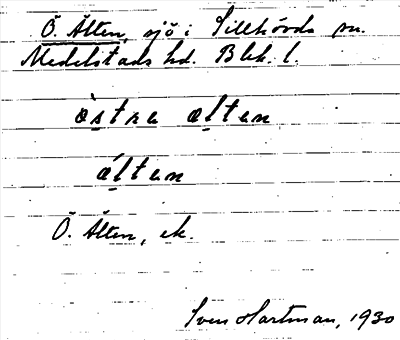 Ö. Älten, sjö i Sillhövda sn.
Medelstads hd. Blek. l.
òstra ælten
ǽlten
Ö. Älten, ek.
Sven Hartman, 1930